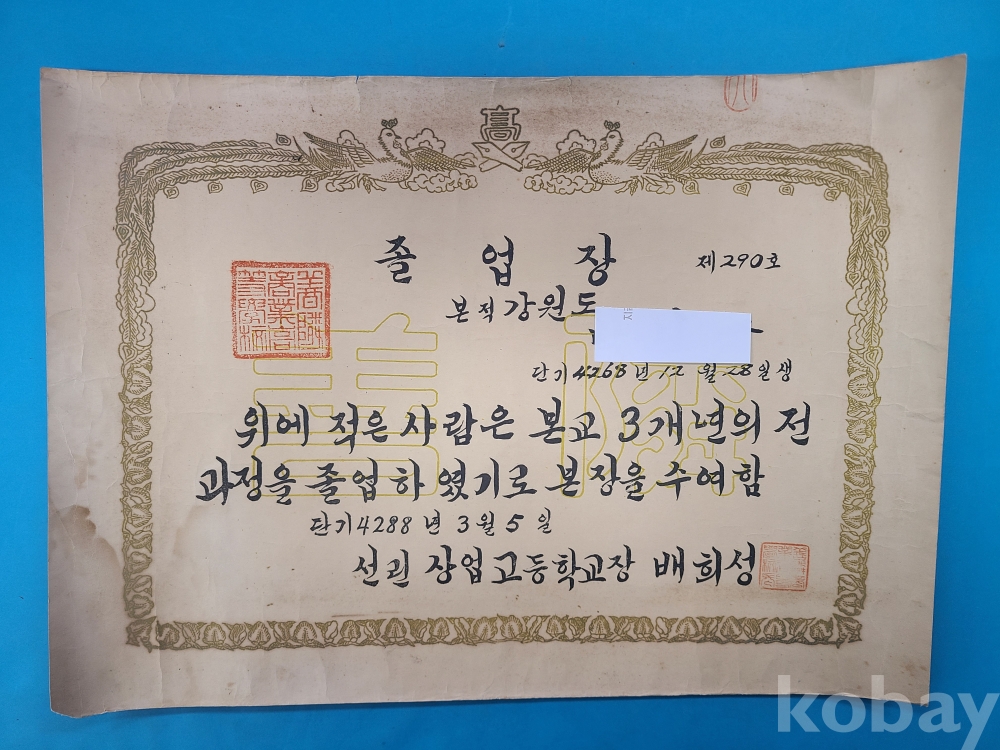 高
졸업장 제290호
본적 강원도
단기 4268년 12월 28일생
위에 적은 사람은 본교 3개년의 전
과정을 졸업하였기로 본장을 수여함
단기 4288년 3월 5일
선린상업고등학교장 배희성
善隣
善隣商業高等學校
kobay